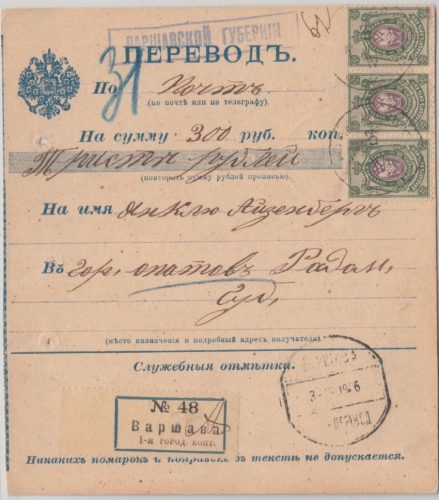 ВАРШАВСКОЙ ГУБЕРНІИ
31
ПЕРЕВОДЪ.
По Почтѣ
(по почтѣ или по телеграфу).
На сумму 300 руб. коп.
Триста рублей
(повторить сумму рублей прописью).
На имя Янклю Айзенбергъ
Въ гор. Опатовъ Радом.
Губ.
(мѣсто назначенія и подробный адресъ получателя)
Служебныя отмѣтки.
ВАРШАВА
№ 48
Варшава
1-я город. конт.
Никакихъ помарокъ и поправокъ въ текстѣ не допускается.